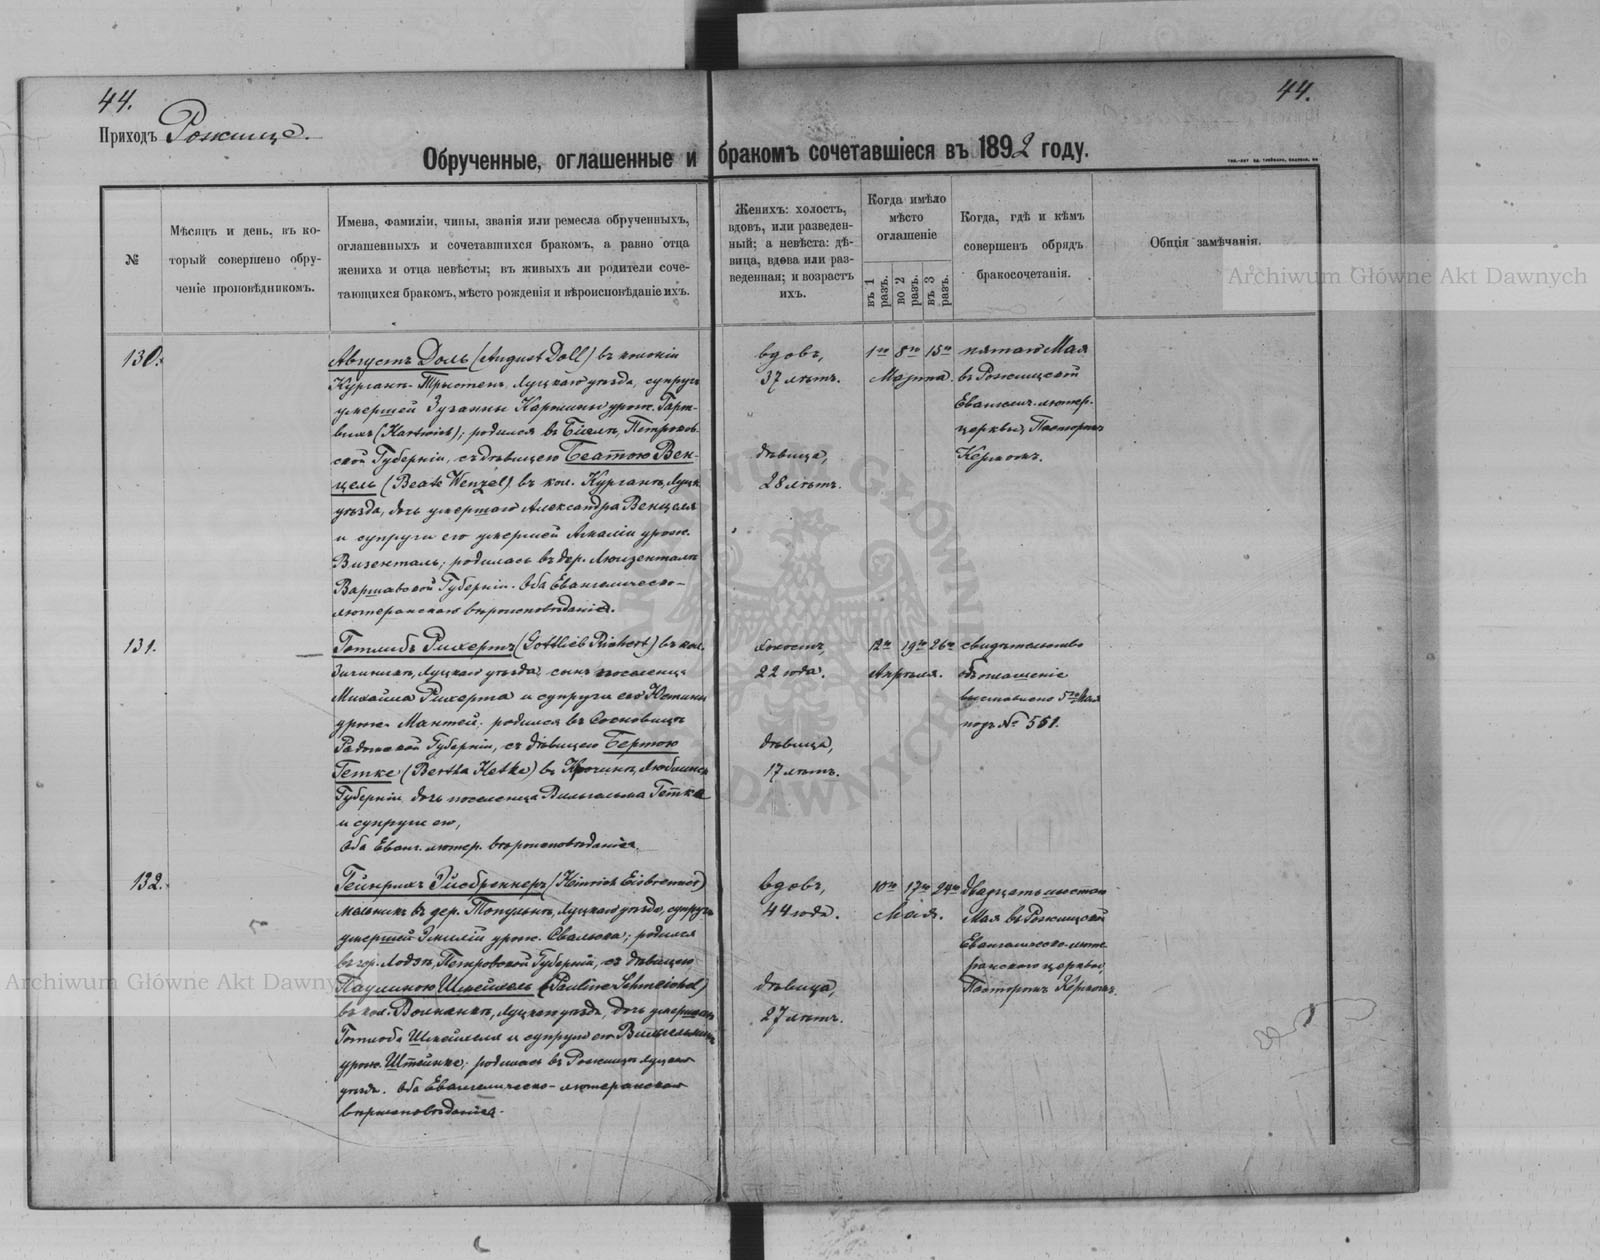 44.
44.
Приходъ Рожище.
Обрученные, оглашенные и бракомъ сочетавшіеся въ 1892 году.
№
Мѣсяцъ и день, въ ко-
торый совершено обру-
ченіе проповѣдникомъ.
Имена, фамиліи, чины, званія или ремесла обрученныхъ,
оглашенныхъ и сочетавшихся бракомъ, а равно отца
жениха и отца невѣсты; въ живыхъ ли родители соче-
тающихся бракомъ, мѣсто рожденія и вѣроисповѣданіе ихъ.
Женихъ: холостъ,
вдовъ, или разведен-
ный; а невѣста: дѣ-
вица, вдова или раз-
веденная; и возрастъ
ихъ.
Когда имѣло
мѣсто
оглашеніе
въ 1 разъ.
во 2 разъ.
въ 3 разъ.
Когда, гдѣ и кѣмъ
совершенъ обрядъ
бракосочетанія.
Общія замѣчанія.
130.
Августъ Доль (August Doll) въ колоніи
Курганъ-Трыстенъ, Луцкаго уѣзда, супругъ
умершей Зузанны Каролины урож. Гарт-
вихъ (Hartwich); родился въ Петроков-
ской Губерніи, съ дѣвицею Беатою Вен-
цель (Beate Wenzel) въ кол. Курганъ, Луцк.
уѣзда, дочь умершаго Александра Венцеля
и супруги его умершей Амаліи урож.
Визенталь; родилась въ дер. Люизенталь
Варшавской Губерніи. Оба Евангелическо-
лютеранскаго вѣроисповѣданія.
вдовъ,
37 лѣтъ.
дѣвица,
28 лѣтъ.
1го 8го 15го
Марта.
пятаго Мая
въ Рожищской
Евангелич. лютер.
церкви, Пасторомъ
Кермомъ.
131.
Готлибъ Рихертъ (Gottlieb Richert) въ кол.
Луцкаго уѣзда, сынъ поселенца
Михаила Рихерта и супруги его Юстины
урож. Мантей; родился въ Сосновицѣ
Радомской Губерніи, съ дѣвицею Бертою
Гетке (Bertha Hetke) въ Люблинск.
Губерніи, дочь поселенца Вильгельма Гетке
и супруги его,
Оба Еванг. лютер. вѣроисповѣданія.
холостъ,
22 года.
дѣвица,
17 лѣтъ.
12го 19го 26го
Апрѣля.
свидѣтельство
объ оглашеніе
выставлено 5го Мая
подъ № 551.
132.
Гейнрихъ Эйсбреннеръ (Heinrich Eisbrenner)
мельникъ въ дер. Топульно, Луцкаго уѣзда, супругъ
умершей Эмиліи урож. родился
въ гор. Лодзь, Петроковской Губерніи, съ дѣвицею
Паулиною Шмейхель (Pauline Schmeichel)
въ кол. Волнянкѣ, Луцкаго уѣзда, дочь умершаго
Готлоба Шмейхеля и супруги его Вильгельмины
урож. Штейнке; родилась въ Рожищѣ Луцкаго
уѣзда. Оба Евангелическо-лютеранскаго
вѣроисповѣданія.
вдовъ,
44 года.
дѣвица,
27 лѣтъ.
10го 17го 24го
Мая.
двадцать шестаго
Мая въ Рожищской
Евангелическо-люте-
ранской церкви,
Пасторомъ Кермомъ.
Archiwum Główne Akt Dawnych
Archiwum Główne Akt Dawnych
ARCHIWUM GŁÓWNE AKT DAWNYCH